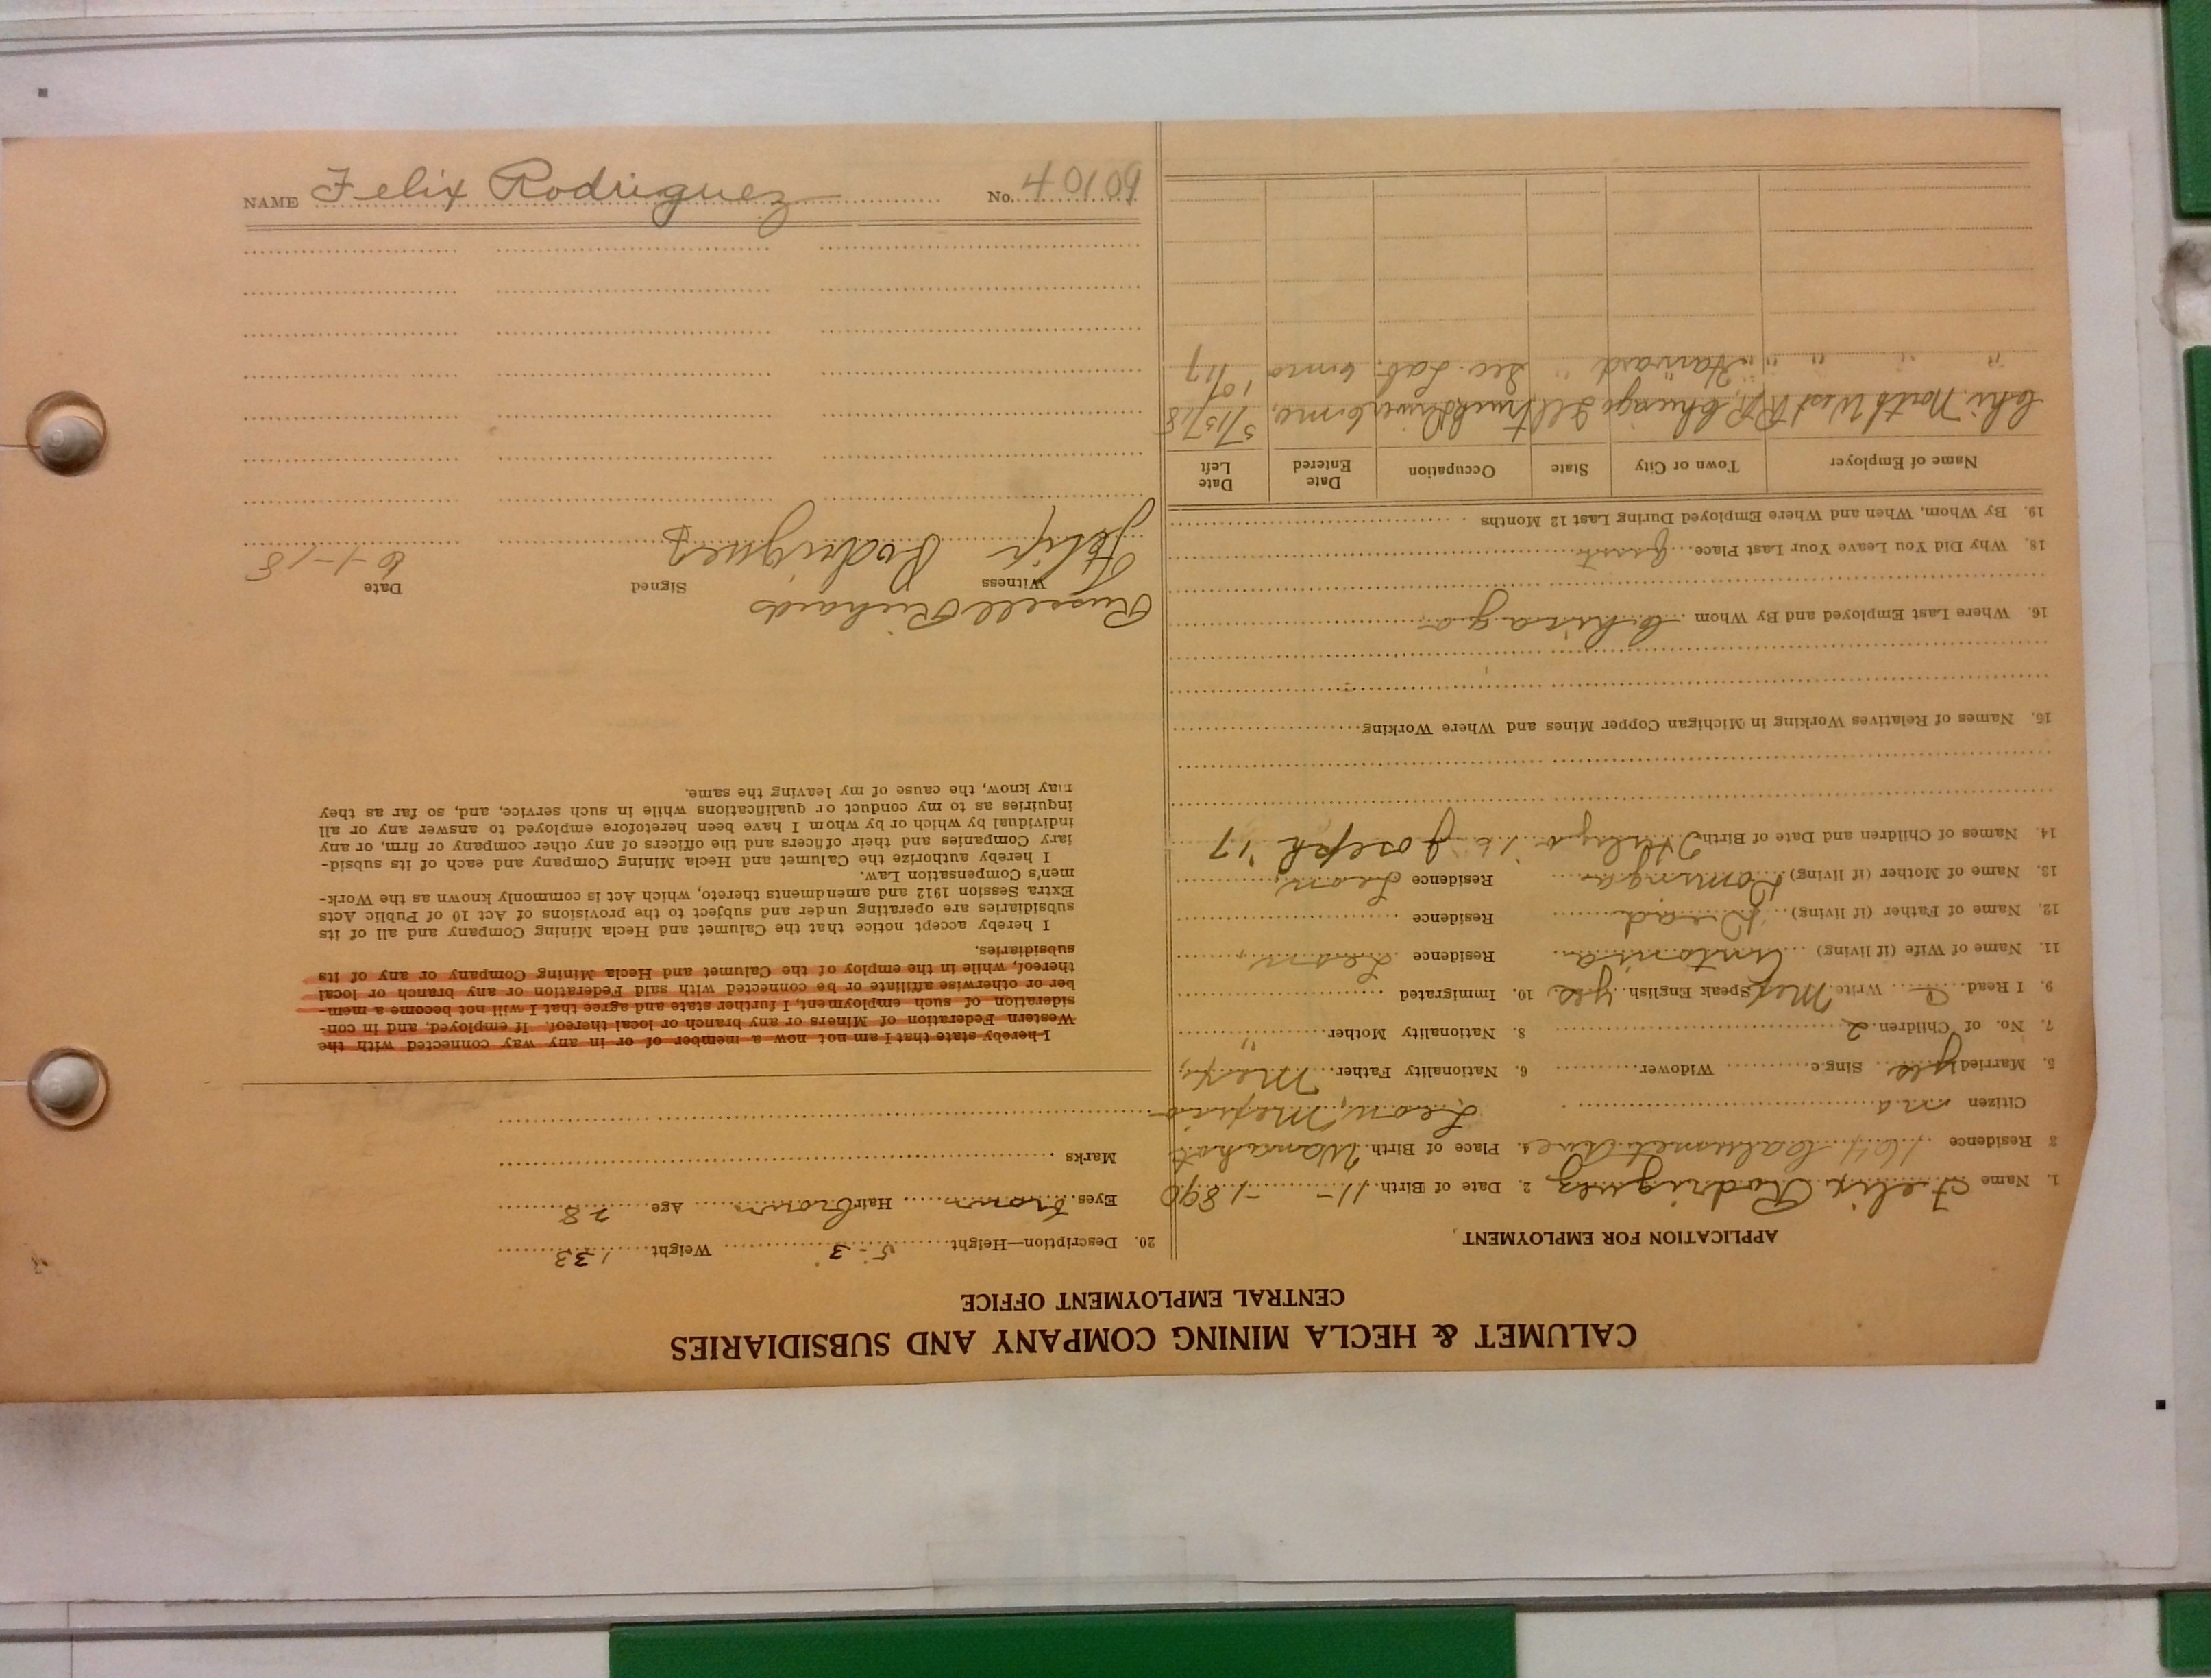 CALUMET & HECLA MINING COMPANY AND SUBSIDIARIES
CENTRAL EMPLOYMENT OFFICE
APPLICATION FOR EMPLOYMENT
1. Name Felix Rodriguez 2. Date of Birth 11- -1890
3 Residence 1604 Calumet Ave 4. Place of Birth
Leon, Mexico
Citizen no
5. Married yes Single Widower 6. Nationality Father Mex.
7. No. of Children 2 8. Nationality Mother "
9. I Read Write Mex Speak English yes 10. Immigrated
11. Name of Wife (if living) Antonia Residence Leon
12. Name of Father (if living) Dead Residence
13. Name of Mother (if living) Dominga Residence Leon
14. Names of Children and Date of Birth '16 Joseph '17
15. Names of Relatives Working in Michigan Copper Mines and Where Working
16. Where Last Employed and By Whom Chicago
18. Why Did You Leave Your Last Place quit
19. By Whom, When and Where Employed During Last 12 Months
Name of Employer Town or City State Occupation Date Entered Date Left
Chi. North West RR. Chicago Ill truck driver 6 mo. 5/15/18
" " " " Harvard " Sec. Lab. 6 mo 10/17
20. Description—Height 5-3 Weight 133
Eyes brown Hair brown Age 28
Marks
I hereby state that I am not now a member of or in any way connected with the
Western Federation of Miners or any branch or local thereof. If employed, and in con-
sideration of such employment, I further state and agree that I will not become a mem-
ber or otherwise affiliate or be connected with said Federation or any branch or local
thereof, while in the employ of the Calumet and Hecla Mining Company or any of its
subsidiaries.
I hereby accept notice that the Calumet and Hecla Mining Company and all of its
subsidiaries are operating under and subject to the provisions of Act 10 of Public Acts
Extra Session 1912 and amendments thereto, which Act is commonly known as the Work-
men's Compensation Law.
I hereby authorize the Calumet and Hecla Mining Company and each of its subsid-
iary Companies and their officers and the officers of any other company or firm, or any
individual by which or by whom I have been heretofore employed to answer any or all
inquiries as to my conduct or qualifications while in such service, and, so far as they
may know, the cause of my leaving the same.
Russell Richards
Witness Signed Date
Felix Rodriguez 6-1-18
NAME Felix Rodriguez No. 40109